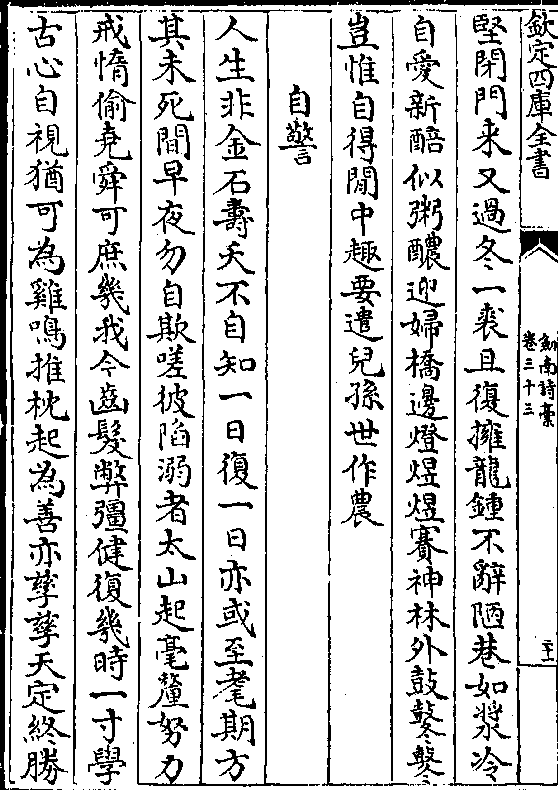 欽定四庫全書
劍南詩稾
卷三十三
二十一
堅閉門来又過冬一裘且復擁龍鍾不辭陋巷如漿冷
自愛新醅似粥醲迎婦橋邊燈煜煜賽神林外鼓鼕鼕
豈惟自得閒中趣要遣兒孫世作農
自警
人生非金石壽夭不自知一日復一日亦或至耄期方
其未死間早夜勿自欺嗟彼陷溺者太山起毫釐努力
戒惰偷堯舜可庶幾我今齒髮弊彊健復幾時一寸學
古心自視猶可為雞鳴推枕起為善亦孳孳天定終勝